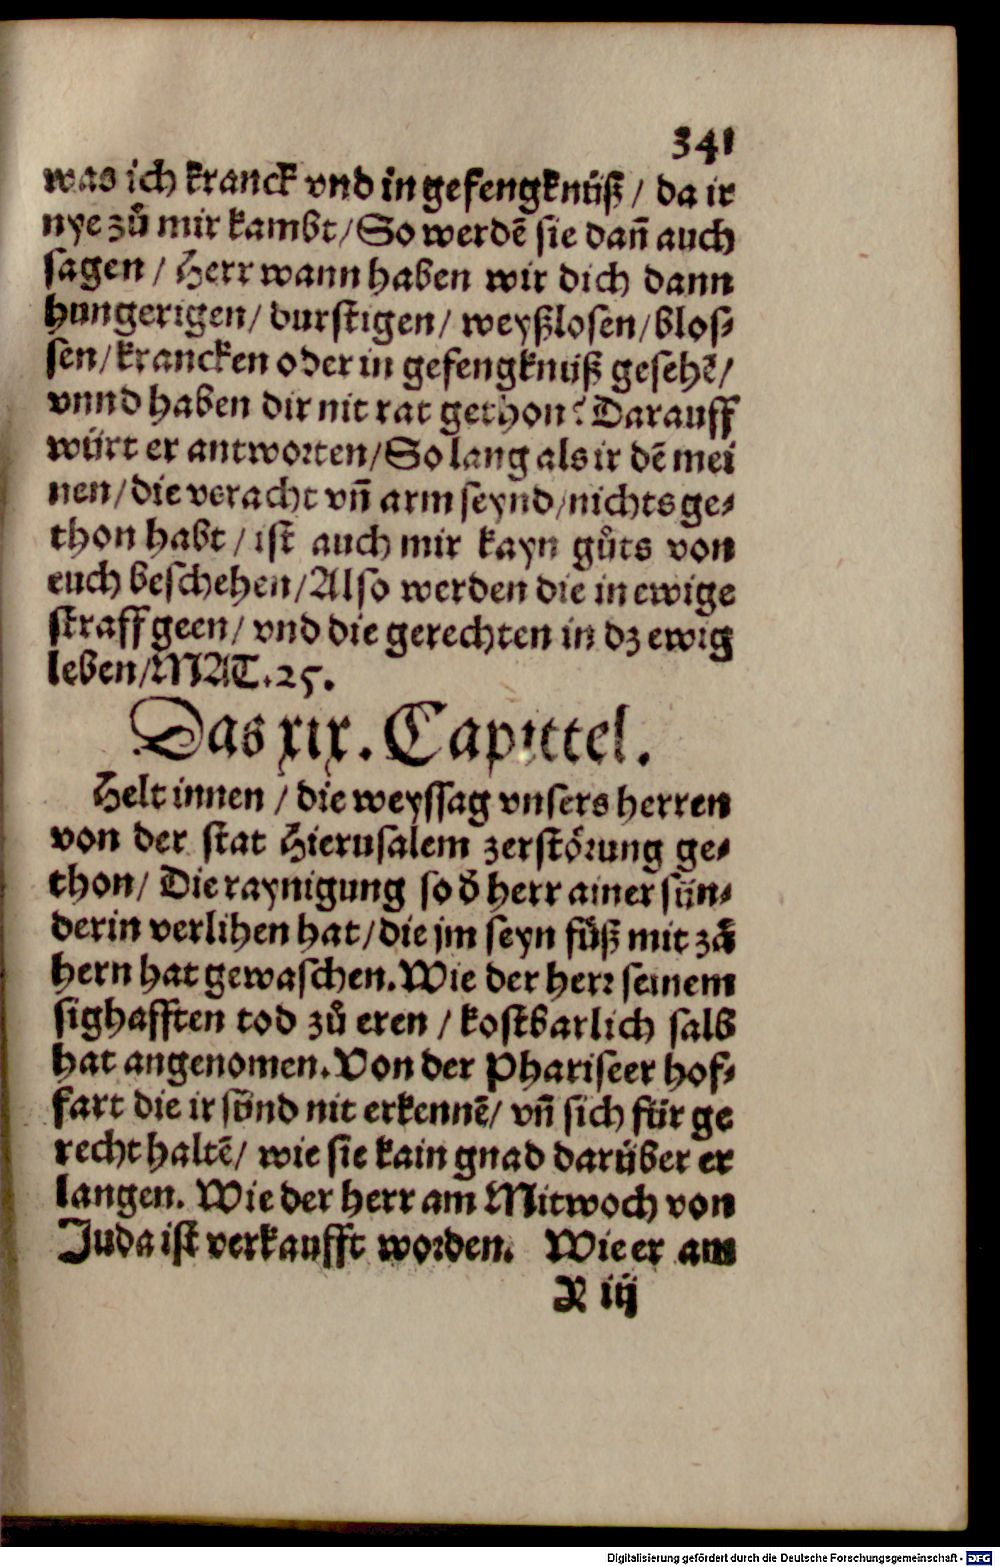 341
was ich kranck vnd in gefengknüß / da ir
nye zů mir kambt / So werdē sie dañ auch
sagen / Herr wann haben wir dich dann
hungerigen / durstigen / weyßlosen / blos⸗
sen / krancken oder in gefengknuß gesehē /
vnnd haben dir nit rat gethon? Darauff
würt er antworten / So lang als ir dē mei
nen / die veracht vñ arm seynd / nichts ge⸗
thon habt / ist auch mir kayn gůts von
euch beschehen / Also werden die in ewige
straff geen / vnd die gerechten in dz ewig
leben / MAT. 25.
Das xix. Capittel.
Helt innen / die weyssag vnsers herren
von der stat Hierusalem zerstörung ge⸗
thon / Die raynigung so d̄ herr ainer sün⸗
derin verlihen hat / die jm seyn fůß mit zä
hern hat gewaschen. Wie der herr seinem
sighafften tod zů eren / kostbarlich salb
hat angenomen. Von der Phariseer hof⸗
fart die ir sünd nit erkennē / vñ sich für ge
recht haltē / wie sie kain gnad darüber er
langen. Wie der herr am Mitwoch von
Juda ist verkaufft worden. Wie er am
X iij
Digitalisierung gefördert durch die Deutsche Forschungsgemeinschaft - DFG